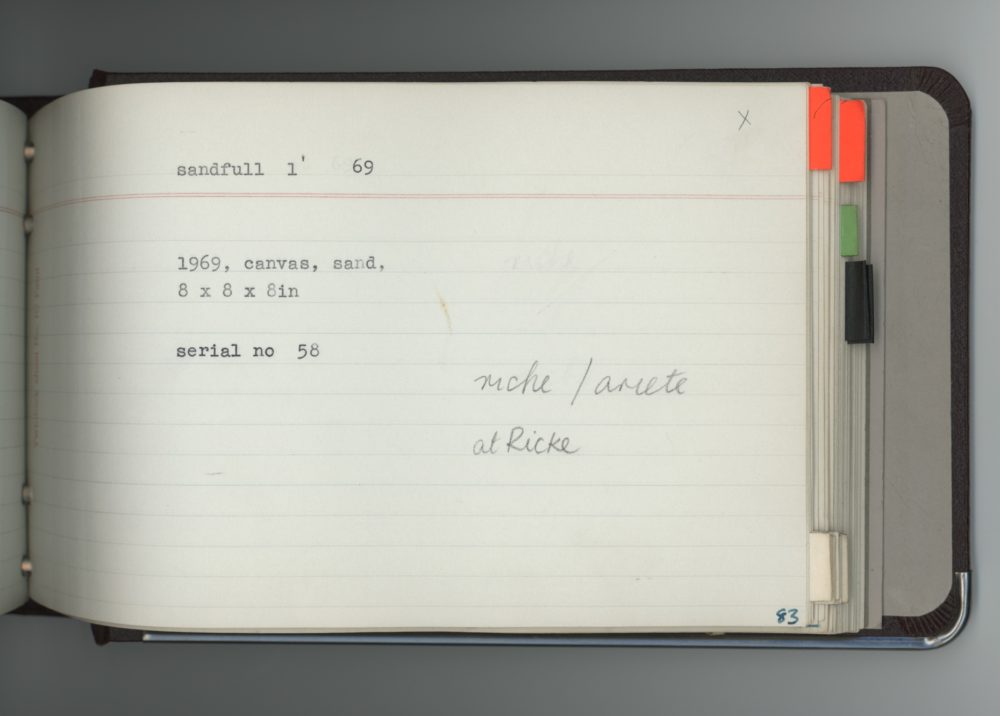 x
sandfull 1' 69
1969, canvas, sand,
8 x 8 x 8in
serial no 58
riche / ariete
at Ricke
83